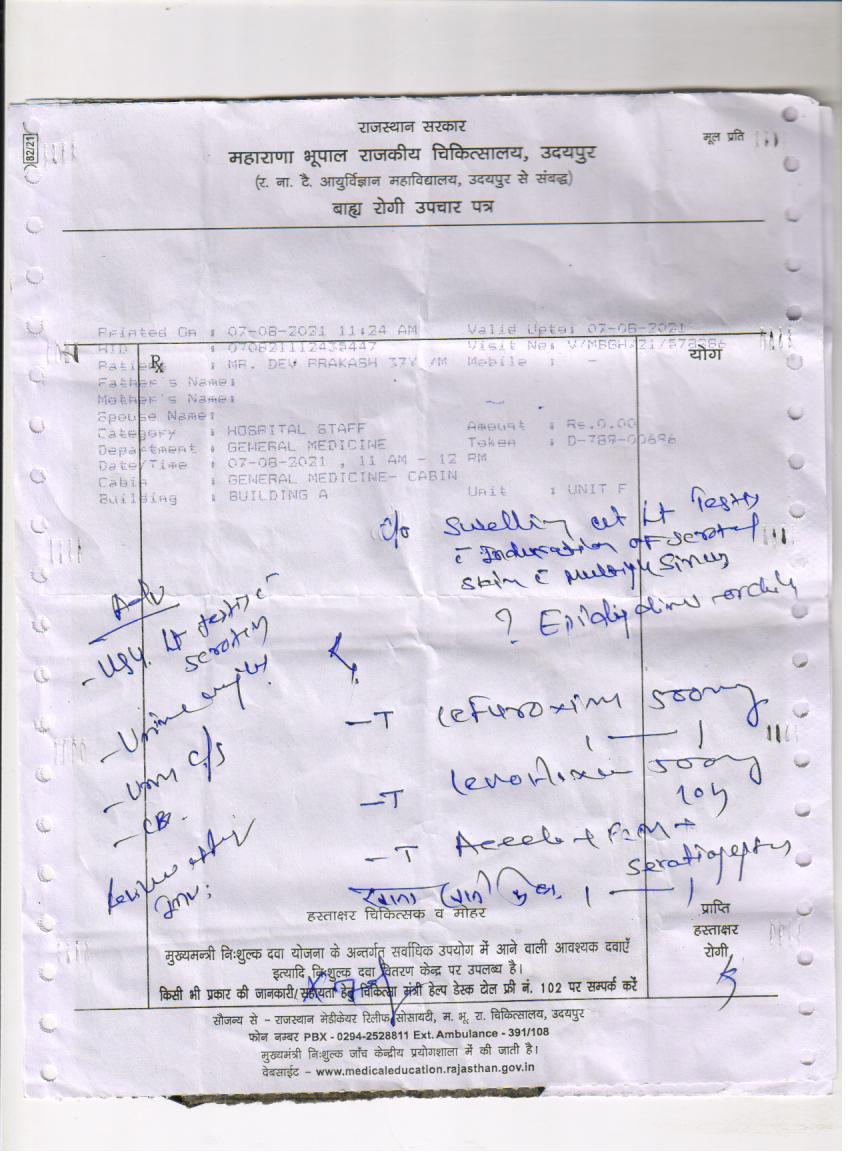 82/21
राजस्थान सरकार
मूल प्रति
महाराणा भूपाल राजकीय चिकित्सालय, उदयपुर
(र. ना. टै. आयुर्विज्ञान महाविद्यालय, उदयपुर से संबद्ध)
बाह्य रोगी उपचार पत्र
Printed On : 07-08-2021 11:24 AM Valid Upto: 07-08-2021
HID : 070821112435447 Visit No: V/MBGH/21/578286
योग
Rx
Patient : MR. DEV PRAKASH 37Y /M Mobile : -
Father's Name:
Mother's Name:
Spouse Name:
Category : HOSPITAL STAFF Amount : Rs.0.00
Department : GENERAL MEDICINE Token : D-789-00686
Date/Time : 07-08-2021 , 11 AM - 12 PM
Cabin : GENERAL MEDICINE- CABIN
Building : BUILDING A Unit : UNIT F
c/o Swelling at Lt Testis
c Induration of scrotal
skin c multiple Sinus
? Epididymo orchitis
Adv
- USG. Lt testis c
scrotum
- Urine
- Urine c/s
- CBC
Review after
Inv:
- T Cefuroxim 500mg
1 — 1
- T Levoflixin 500mg
1 OD
- T Aceclo + PCM +
Seratiopeptis
1 — 1
खाना खाने के बाद
हस्ताक्षर चिकित्सक व मोहर
प्राप्ति
हस्ताक्षर
रोगी
मुख्यमन्त्री निःशुल्क दवा योजना के अन्तर्गत सर्वाधिक उपयोग में आने वाली आवश्यक दवाएँ
इत्यादि निःशुल्क दवा वितरण केन्द्र पर उपलब्ध है।
किसी भी प्रकार की जानकारी/सहायता हेतु चिकित्सा मंत्री हेल्प डेस्क टोल फ्री नं. 102 पर सम्पर्क करें
सौजन्य से - राजस्थान मेडीकेयर रिलीफ सोसायटी, म. भू. रा. चिकित्सालय, उदयपुर
फोन नम्बर PBX - 0294-2528811 Ext. Ambulance - 391/108
मुख्यमंत्री निःशुल्क जाँच केन्द्रीय प्रयोगशाला में की जाती है।
वेबसाईट - www.medicaleducation.rajasthan.gov.in